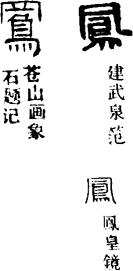 鳳
建武泉范
鳳
鳳皇镜
苍山画象
石题记